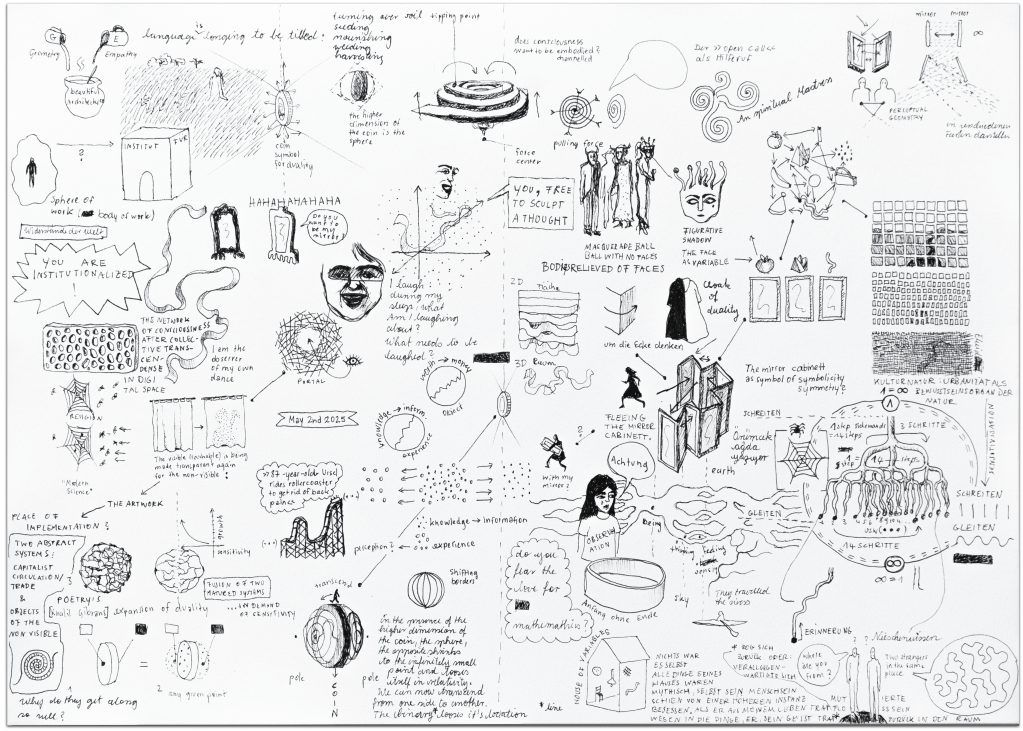 G
E
Geometry
Empathy
beautiful
architecture
language is longing to be tilled:
turning over soil
seeding
nourishing
weeding
harvesting
tipping point
does consciousness
want to be embodied?
channelled
Der »open call«
als Hilferuf
An spiritual Madness
mirror
mirror
∞
PERCEPTUAL
GEOMETRY
?
INSTITUT
FUR
Sphere of
work (body of work)
coin
symbol
for duality
the higher
dimension of
the coin is the
sphere
force
center
pulling force
YOU, FREE
TO SCULPT
A THOUGHT
MACQUERADE BALL
BALL WITH NO FACES
BODIES RELIEVED OF FACES
FIGURATIVE
SHADOW
THE FACE
AS VARIABLE
Widerwands der Welt
YOU ARE
INSTITUTIONALIZED
!
HAHAHAHAHAHA
Do you
want to
be my
mirror?
I laugh
during my
sleep, what
Am I laughing
about?
What needs to be
laughed?
THE NETWORK
OF CONCIOUSNESS
AFTER COLLEC-
TIVE TRANS-
CEN-
DENSE
IN DIGI
TAL SPACE
I am the
observer
of my own
dance
PORTAL
2D
Fläche
3D Raum
um die Ecke denken
Cloak
of
duality
RELIGION
"Modern
Science"
The visible (livable) is being
made transparent again
for the non-visible!
May 2nd 2025
worth → money
object
knowledge → inform
experience
FLEEING
THE MIRROR
CABINETT.
The mirror cabinett
as symbol of symbolicity
symmetry?
KULTURNATUR: URBANITÄT ALS
BEWUSSTSEINSORGAN DER
NATUR
1 = ∞
1
SCHREITEN
1 step sidewards
= 14 steps
3 SCHRITTE
1 step
14 steps
SCHREITEN
GLEITEN
GLEITEN
14 SCHRITTE
∞
∞ = 1
Örümcek
ağda
yaşıyor
earth
Achtung
?
with my
mirror?
OBSERV
ATION
Being
thinking feeling
sensing
sky
They travelled
the cross
ERINNERUNG
THE ARTWORK
PLACE OF
IMPLEMENTATION?
TWO ABSTRACT
SYSTEMS:
CAPITALIST
CIRCULATION/
TRADE
&
OBJECTS
OF THE
NON VISIBLE
?
growth
sensitivity
FUSION OF TWO
MATURED SYSTEMS
... IN DEMAND
OF SENSITIVITY
POETRY IS
[Khalil Gibrans] expansion of duality
=
?
any given point
Why do they get along
so well?
»87-year-old Ursel
rides rollercoaster
to get rid of back
pains«
(...)
perception?
knowledge → information
experience
Shifting
borders
transcend
pole
pole
C
O
I
N
in the presence of the
higher dimension of
the coin, the sphere,
the opposite shrinks
to the infinitely small
point and looses
itself in relativity.
We can now transcend
from one side to another.
The binary* looses it's location
* line
do you
fear the
love for
mathematics?
Anfang ohne Ende
HOUSE OF VARIABLES
NICHTS WAR
ES SELBST
ALLE DINGE SEINES
HAUSES WAREN
MYTHISCH, SELBST SEIN MENSCHSEIN
SCHIEN VON EINER HÖHEREN INSTANZ
BESESSEN, ALS ER AN MEINEM LEBEN TRAT UND
WESEN IN DIE DINGE, ER, SEIN GEIST TRAT
ZURÜCK IN DEN RAUM
* BOG SICH
ZURÜCK ODER:
where
are you
from?
Two strangers
in the same
place